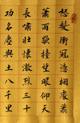 怒髮衝冠憑欄處瀟
瀟雨歇抬望眼仰天
長嘯壯懷激烈三十
功名塵與土八千里